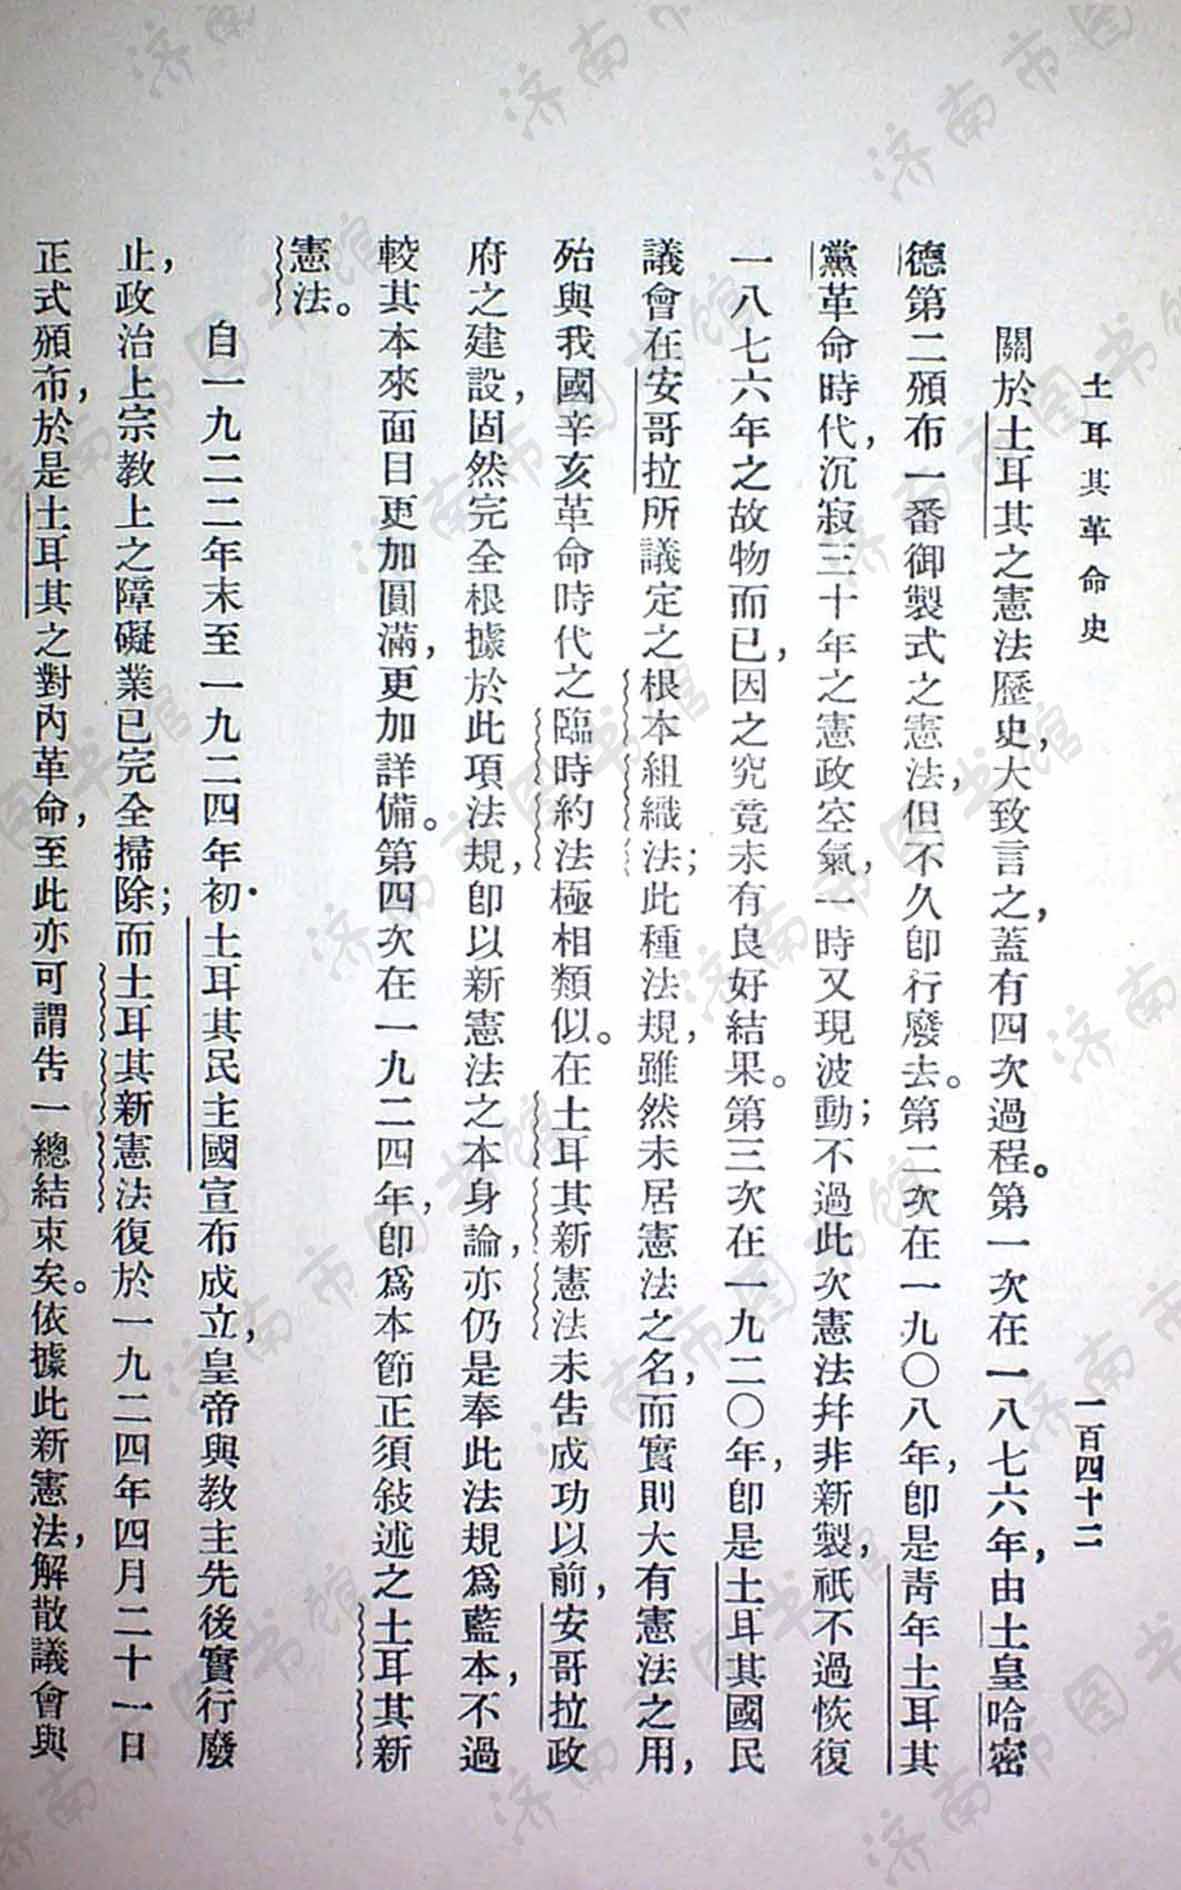 土耳其革命史
一百四十二
關於土耳其之憲法歷史，大致言之，蓋有四次過程。第一次在一八七六年，由土皇哈密
德第二頒布一番御製式之憲法，但不久卽行廢去。第二次在一九〇八年，卽是靑年土耳其
黨革命時代，沉寂三十年之憲政空氣，一時又現波動；不過此次憲法幷非新製，祇不過恢復
一八七六年之故物而已，因之究竟未有良好結果。第三次在一九二〇年，卽是土耳其國民
議會在安哥拉所議定之根本組織法；此種法規，雖然未居憲法之名，而實則大有憲法之用，
殆與我國辛亥革命時代之臨時約法極相類似。在土耳其新憲法未吿成功以前，安哥拉政
府之建設，固然完全根據於此項法規，卽以新憲法之本身論，亦仍是奉此法規爲藍本，不過
較其本來面目更加圓滿，更加詳備。第四次在一九二四年，卽爲本節正須敍述之土耳其新
憲法。
自一九二二年末至一九二四年初·土耳其民主國宣布成立，皇帝與教主先後實行廢
止，政治上宗教上之障礙業已完全掃除；而土耳其新憲法復於一九二四年四月二十一日
正式頒布，於是土耳其之對內革命，至此亦可謂吿一總結束矣。依據此新憲法，解散議會與
济南市图书馆